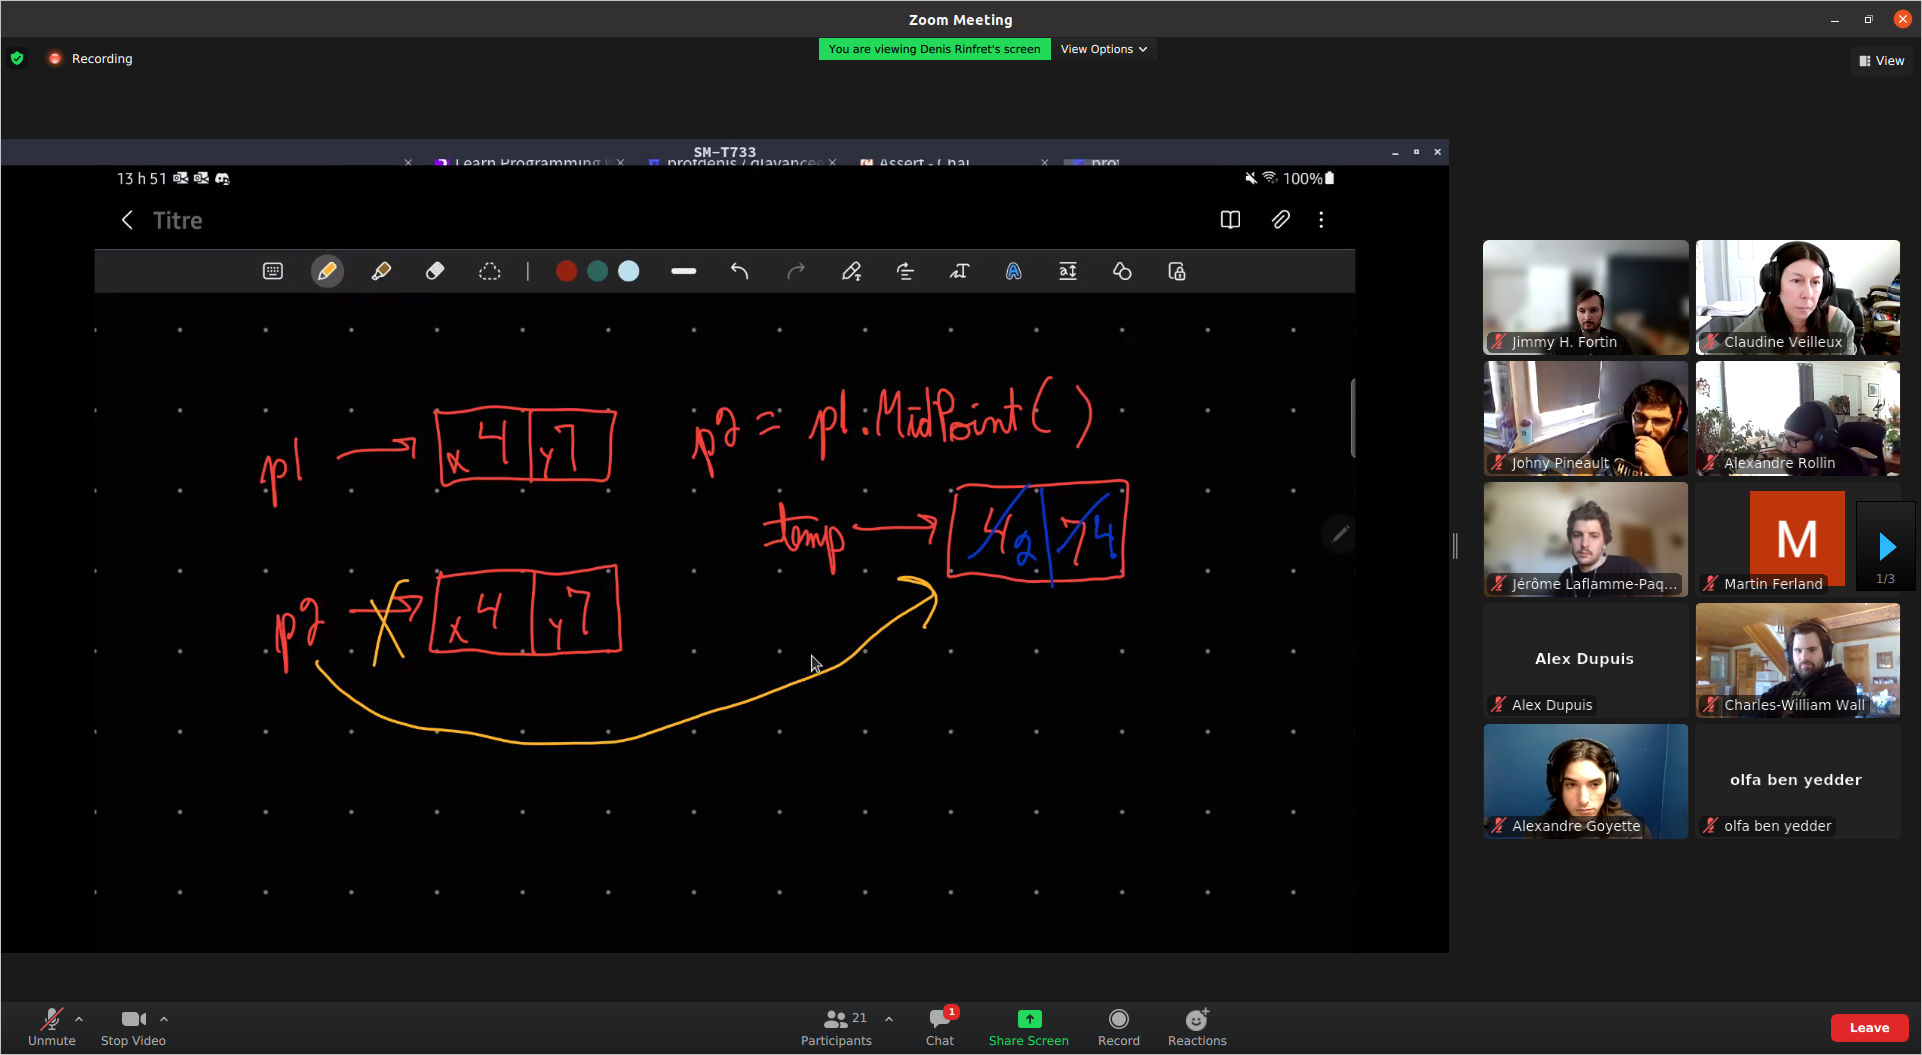 Zoom Meeting
Recording
You are viewing Denis Rinfret's screen
View Options
View
SM-T733
Learn Programming
profdenis / qlavancee
Assert - Chai
pro
13 h 51
100%
Titre
p1
x 4 y 7
p2 = p1.MidPoint( )
temp
4 2 7 4
p2
x 4 y 7
Jimmy H. Fortin
Claudine Veilleux
Johny Pineault
Alexandre Rollin
Jérôme Laflamme-Paq...
M
Martin Ferland
1/3
Alex Dupuis
Alex Dupuis
Charles-William Wall
Alexandre Goyette
olfa ben yedder
olfa ben yedder
Unmute
Stop Video
21
Participants
1
Chat
Share Screen
Record
Reactions
Leave